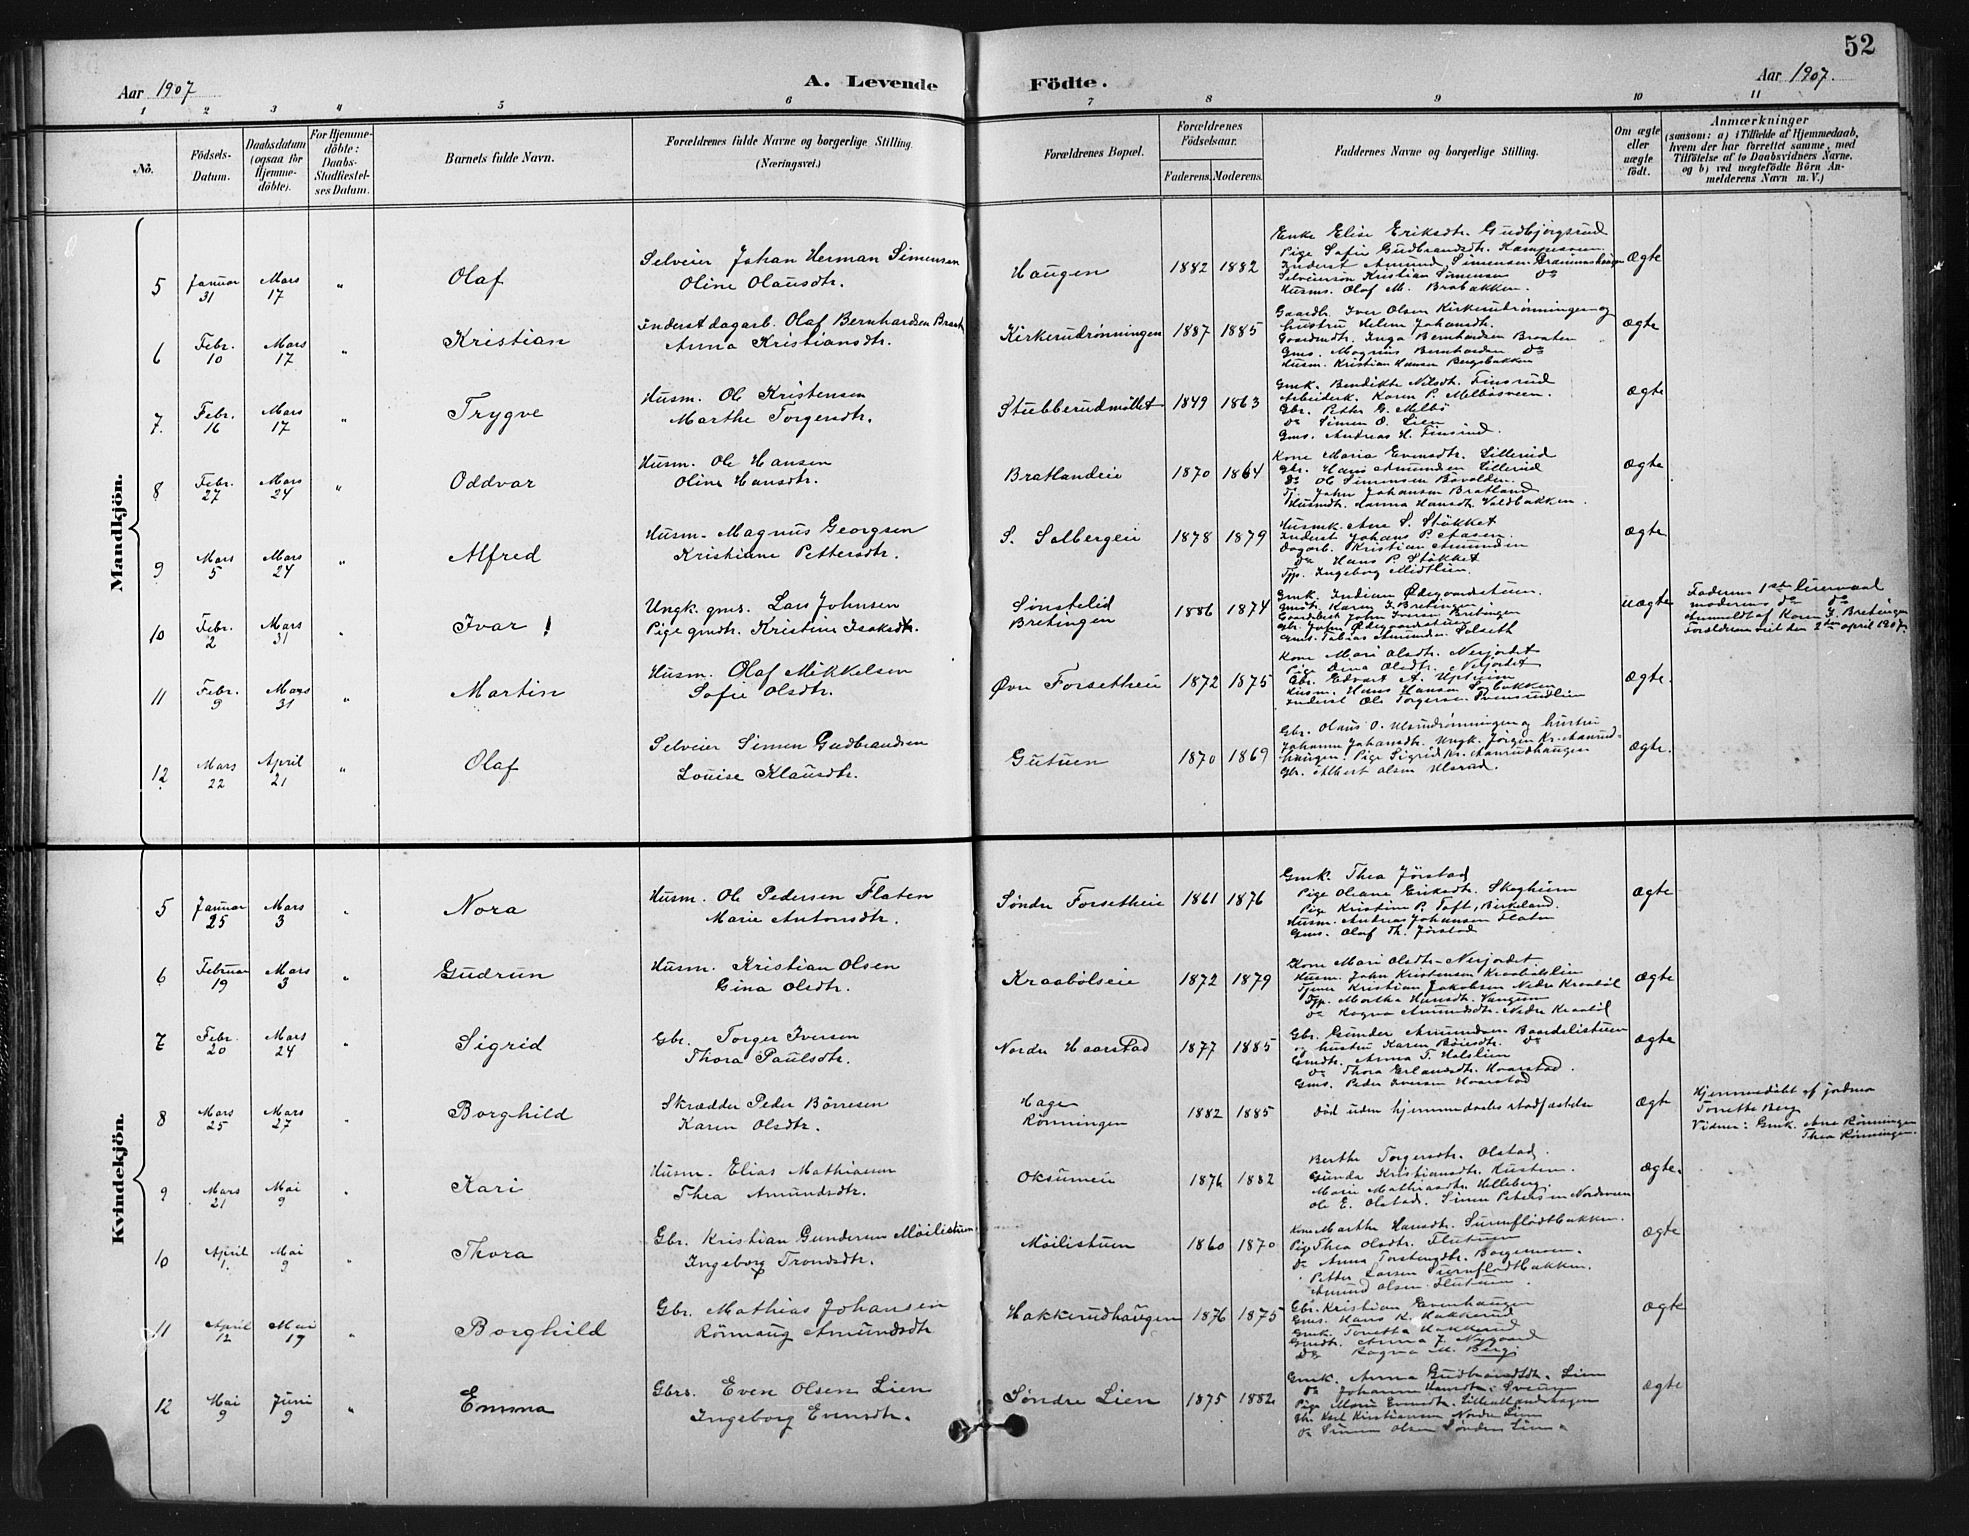 52
Aar 1907
A. Levende
Födte.
Aar 1907.
1 2 3 4 5 6 7 8 9 10 11
No.
Födsels-
Datum.
Daabsdatum
(ogsaa for
Hjemme-
döbte).
For Hjemme-
döbte:
Daabs-
Stadfæstel-
ses Datum.
Barnets fulde Navn.
Forældrenes fulde Navne og borgerlige Stilling.
(Næringsvei.)
Forældrenes Bopæl.
Forældrenes
Födselsaar.
Faderens.
Moderens.
Faddernes Navne og borgerlige Stilling.
Om ægte
eller
uægte
født.
Anmærkninger
(saasom: a) i Tilfælde af Hjemmedaab,
hvem der har forrettet samme, med
Tilföielse af to Daabsvidners Navne,
og b) ved uægtefödte Börn An-
melderens Navn m. V.)
Mandkjön.
5 Januar 31 Mars 17 " Olaf
Selveier Johan Herman Simensen
Oline Olausdtr.
Haugen 1882 1882
Enke Elise Eriksdtr. Gudbjørgsrud
Pige Sofie Gudbrandsdtr. Kampesveen
Inderst Amund Simensen
Selveiersøn Kristian Simensen Do
Husms. Olaf M. Brobakken.
Ægte
6 Febr. 10 Mars 17 " Kristian
Inderst dagarb. Olaf Bernhardsen
Anna Kristiansdtr.
Kirkerudrønningen 1887 1885
Gaardb. Iver Olsen Kirkerudrønningen og
hustru Helene Johansdtr.
Inga Bernhardsen Braaten
Gms. Magnus Bernhardsen Do
Husm. Kristian Hansen Bergsbakken
Ægte
7 Febr. 16 Mars 17 " Trygve
Husm. Ole Kristensen
Marthe Torgersdtr.
Stubberudmøllet 1849 1863
Gmk. Bendikte Nilsdtr. Finsrud
Arbeiderk. Karen P. Melbøsveen.
Gbr. Petter G. Melbø
Do Simen O. Lien
Gms. Andreas H. Finsrud.
Ægte
8 Febr. 27 Mars 24 " Oddvar
Husm. Ole Hansen
Oline Hansdtr.
Bratlandeie 1870 1864
Kone Maria Evensdtr. Lillerud
Gbr. Hans Amundsen Lillerud
Do Ole Simensen
Tj. John Johansen Bratland
Husmdtr. Hansdtr. Voldbakken.
Ægte
9 Mars 5 Mars 24 " Alfred
Husm. Magnus Georgsen
Kristiane Pettersdtr.
S. Salbergeie 1878 1879
Husmk. Ane S. Støkket
Inderst Johans P. Aasen.
Dagarb. Kristian Amundsen
Do Hans P. Støkket
Tjp. Ingeborg Midtlien.
Ægte
10 Febr. 2 Mars 31 " Ivar !
Ungk. gms. Lars Johnsen
Pige gmdtr. Kristine Isaksdtr.
Sønstelid
Bretingen
1886 1874
Gmk. Indiane Ødegaardstuen.
Gmdt. Karen I. Bretingen
John Iversen Bretingen
Gbr. John Ødegaardstuen
Gms. Tobias Amundsen Solseth
uægte
Faderens 1ste leiermaal
moderens do do
Anmeldt af Karen I. Bretingen
Forældrene viet den 2den april 1907.
11 Febr. 9 Mars 31 " Martin
Husm. Olaf Mikkelsen
Sofie Olsdtr.
Øvre Forsetheie 1872 1875
Kone Mari Olsdtr. Nerjordet
Pige Olsdtr. Nerjordet
Gbr. Edvart A. Upheim
Husm. Hans Hansen
Inderst Ole Torgersen Svensrudlien
Ægte.
12 Mars 22 April 21 " Olaf
Selveier Simen Gudbrandsen
Louise Klausdtr.
Gutuen 1870 1869
Gbr. Olaus O. Ulsrudrønningen og hustru
Johanne Johansdtr. Ungk. Jørgen Kr. Aanrud-
haugen. Pige Sigrid Kr. Aanrudhaugen
Gbr. Albert Olsen Ulsrud.
Ægte.
Kvindekjön.
5 Januar 25 Mars 3 " Nora
Husm. Ole Pedersen Flaten
Marie Antonsdtr.
Søndre Forsetheie 1861 1876
Gmk. Thea Jørstad
Pige Oleane Eriksdtr. Skogheim
Pige Kristine P. Toft, Birkeland.
Husm. Andreas Johansen Flaten
Gms. Olaf Th. Jørstad
Ægte
6 Februar 19 Mars 3 " Gudrun
Husm. Kristian Olsen
Gina Olsdtr.
Kraabølseie 1872 1879
Kone Mari Olsdtr. Nerjordet
Husm. John Kristensen Kraabølslien
Tjener Kristian Jakobsen Nedre Kraabøl
Tjp. Martha Hansdtr. Vangen
Do Ragna Amundsdtr. Nedre Kraabøl
Ægte
7 Febr. 20 Mars 24 " Sigrid
Gbr. Torger Iverson
Thora Paulsdtr.
Nordre Haarstad 1877 1885
Gbr. Gunder Amundsen Baardslistuen
og hustru Karen Bøiesdtr. Do
Gmdtr. Anna T. Holslien
Do Thora Erlandsdtr. Haarstad.
Gms. Peder Iversen Haarstad
Ægte
8 Mars 25 Mars 27 " Borghild
Skrædder Peder Børresen
Karen Olsdtr.
Hage
Rønningen
1882 1885
Død uden hjemmedaabs stadfæstelse
Ægte
Hjemmedøbt af jordmor
Torette Berg
Vidner: Gmk. Ane Rønningen
Thea Rønningen.
9 Mars 21 Mai 9 " Kari
Husm. Elias Mathiasen
Thea Amundsdtr.
Oksumeie 1876 1882
Berthe Torgersdtr. Olstad.
Gunda Kristiansdtr. Kusten.
Marie Mathiasdtr. Helleberg.
Ole E. Olstad. Simen Petersen Nordsveen
Ægte.
10 April 1. Mai 9 " Thora
Gbr. Kristian Gundersen Möilistuen
Ingeborg Trondsdtr.
Möilistuen 1860 1870
Kone Marthe Hansdtr. Surnflødtbakken.
Pige Thea Olsdtr. Flutuen
Do Anna Torstensdtr. Borgemoen.
Petter Larsen Surnflødtbakken.
Amund Olsen Flutuen.
Ægte
11 April 12 Mai 19 " Borghild
Gbr. Mathias Johansen
Rönnaug Amundsdtr
Hakkerudhaugen 1876 1875
Gbr. Kristian Evenhaugen
Gms. Hans K. Hakkerud
Gmk. Toretta Hakkerud
Gmdtr. Anna J. Nygaard
Do Ragna M. Berg
Ægte
12 Mai 9 Juni 9 " Emma
Gbrs. Even Olsen Lien
Ingeborg Evensdtr.
Søndre Lien 1875 1882
Gmk. Anna Gudbrandsdtr. Lien
Do Johanne Hansdtr. Sveum
Pige Marie Evensdtr.
Gbr. Karl Kristiansen Nordre Lien
Do Simen Olsen Søndre Lien
Ægte